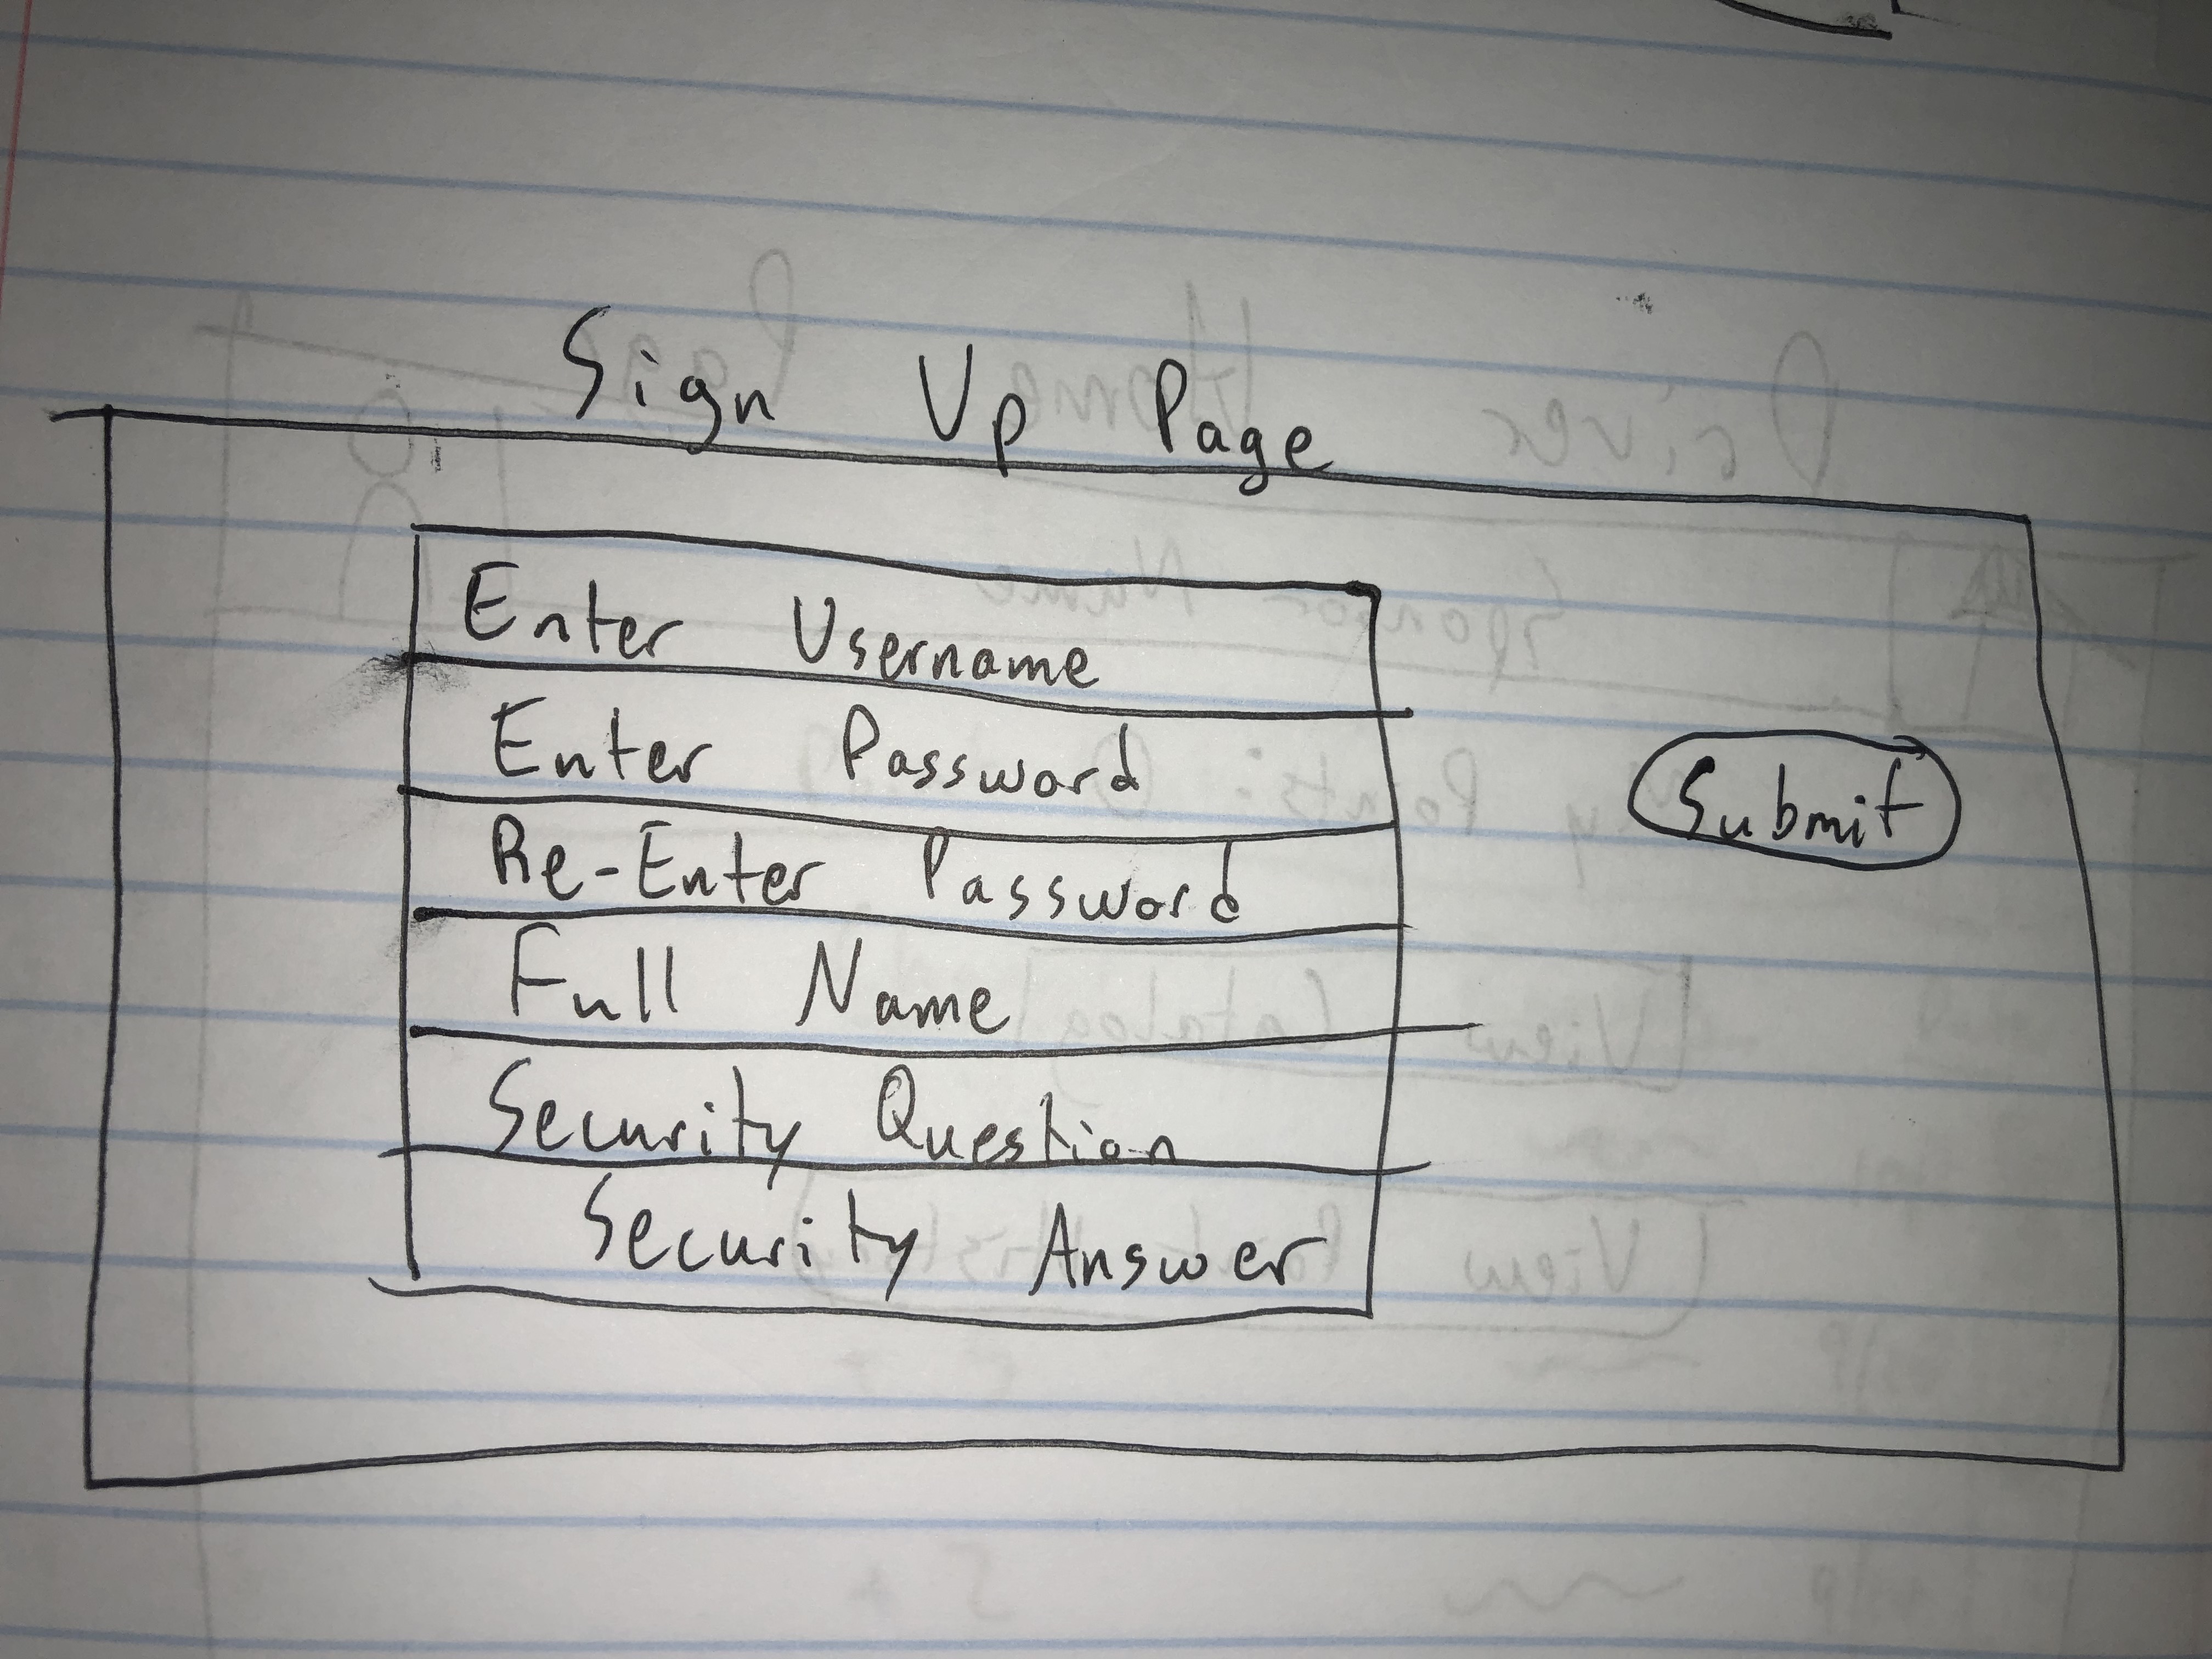 Sign Up Page
Enter Username
Enter Password
Re-Enter Password
Full Name
Security Question
Security Answer
Submit